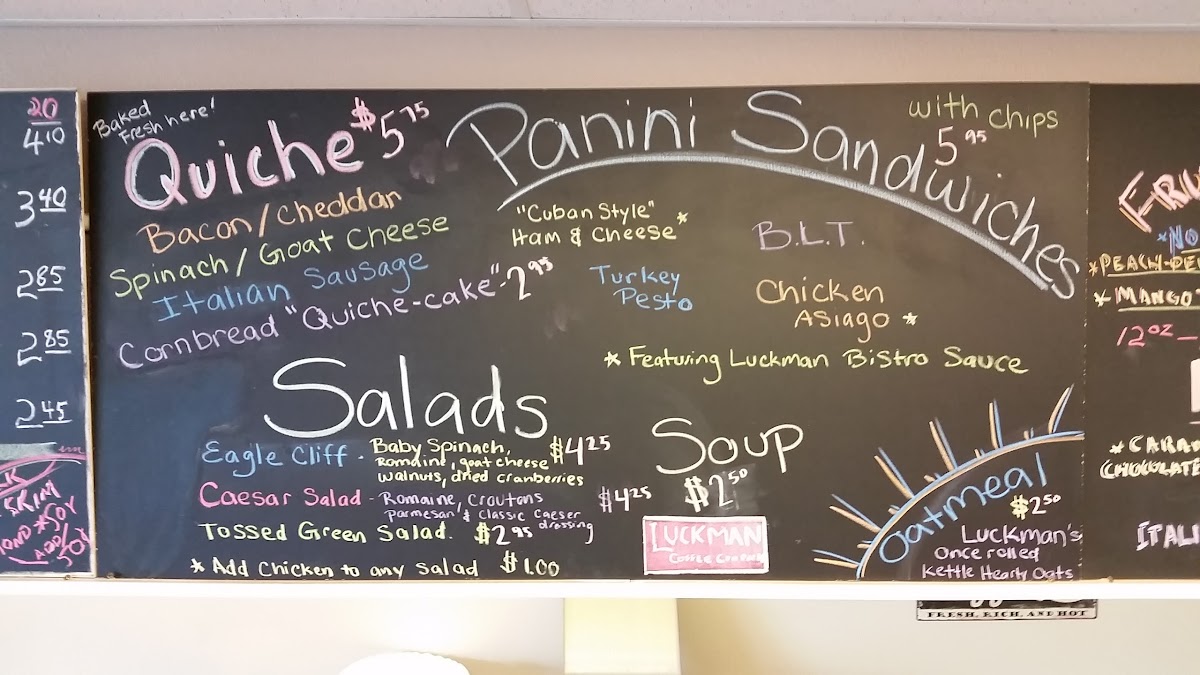 20
4 10
3 40
2 85
2 85
2 45
SKIM
SOY
Baked
Fresh here!
Quiche $5 75
Bacon/Cheddar
Spinach/Goat Cheese
Italian Sausage
Cornbread "Quiche-cake" - 2 95
Panini Sandwiches
with chips
5 95
"Cuban Style" *
Ham & Cheese
B.L.T.
Turkey
Pesto
Chicken
Asiago *
* Featuring Luckman Bistro Sauce
Salads
Eagle Cliff - Baby Spinach, $4 25
Romaine, goat cheese
walnuts, dried cranberries
Caesar Salad - Romaine, Croutons $4 25
Parmesan & Classic Caeser
dressing
Tossed Green Salad. $2 95
* Add Chicken to any salad $1.00
Soup
$2 50
LUCKMAN
COFFEE COMPANY
Oatmeal
$2 50
Luckman's
Once rolled
Kettle Hearty Oats
* MANGO
12 oz -
FRESH, RICH, AND HOT